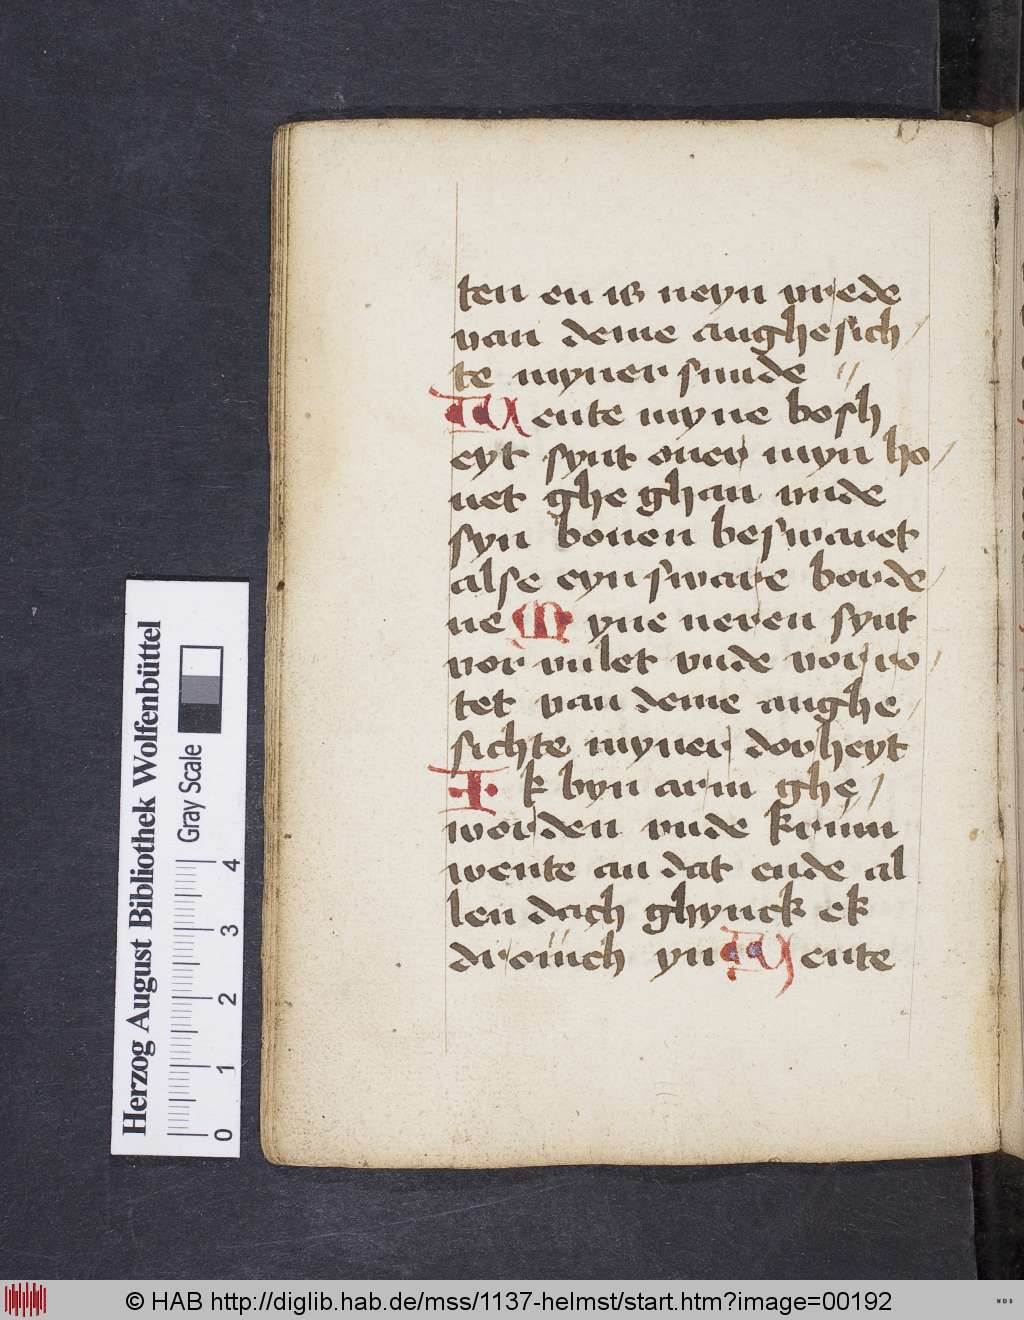 ten en is neyn vrede
van deme anghesich
te myner sunde
Wente myne bosh
eyt synt ouer myn ho
uet ghe ghan vnde
syn bouen beswaret
alse eyn sware borde
ne Myne neren synt
vor vulet vnde vor ro
tet van deme anghe
sichte myner dorheyt
Ik byn arm ghe
worden vnde krum
wente an dat ende al
len dach ghynck ek
drouich yn Wente
Herzog August Bibliothek Wolfenbüttel
Gray Scale
0 1 2 3 4
© HAB http://diglib.hab.de/mss/1137-helmst/start.htm?image=00192